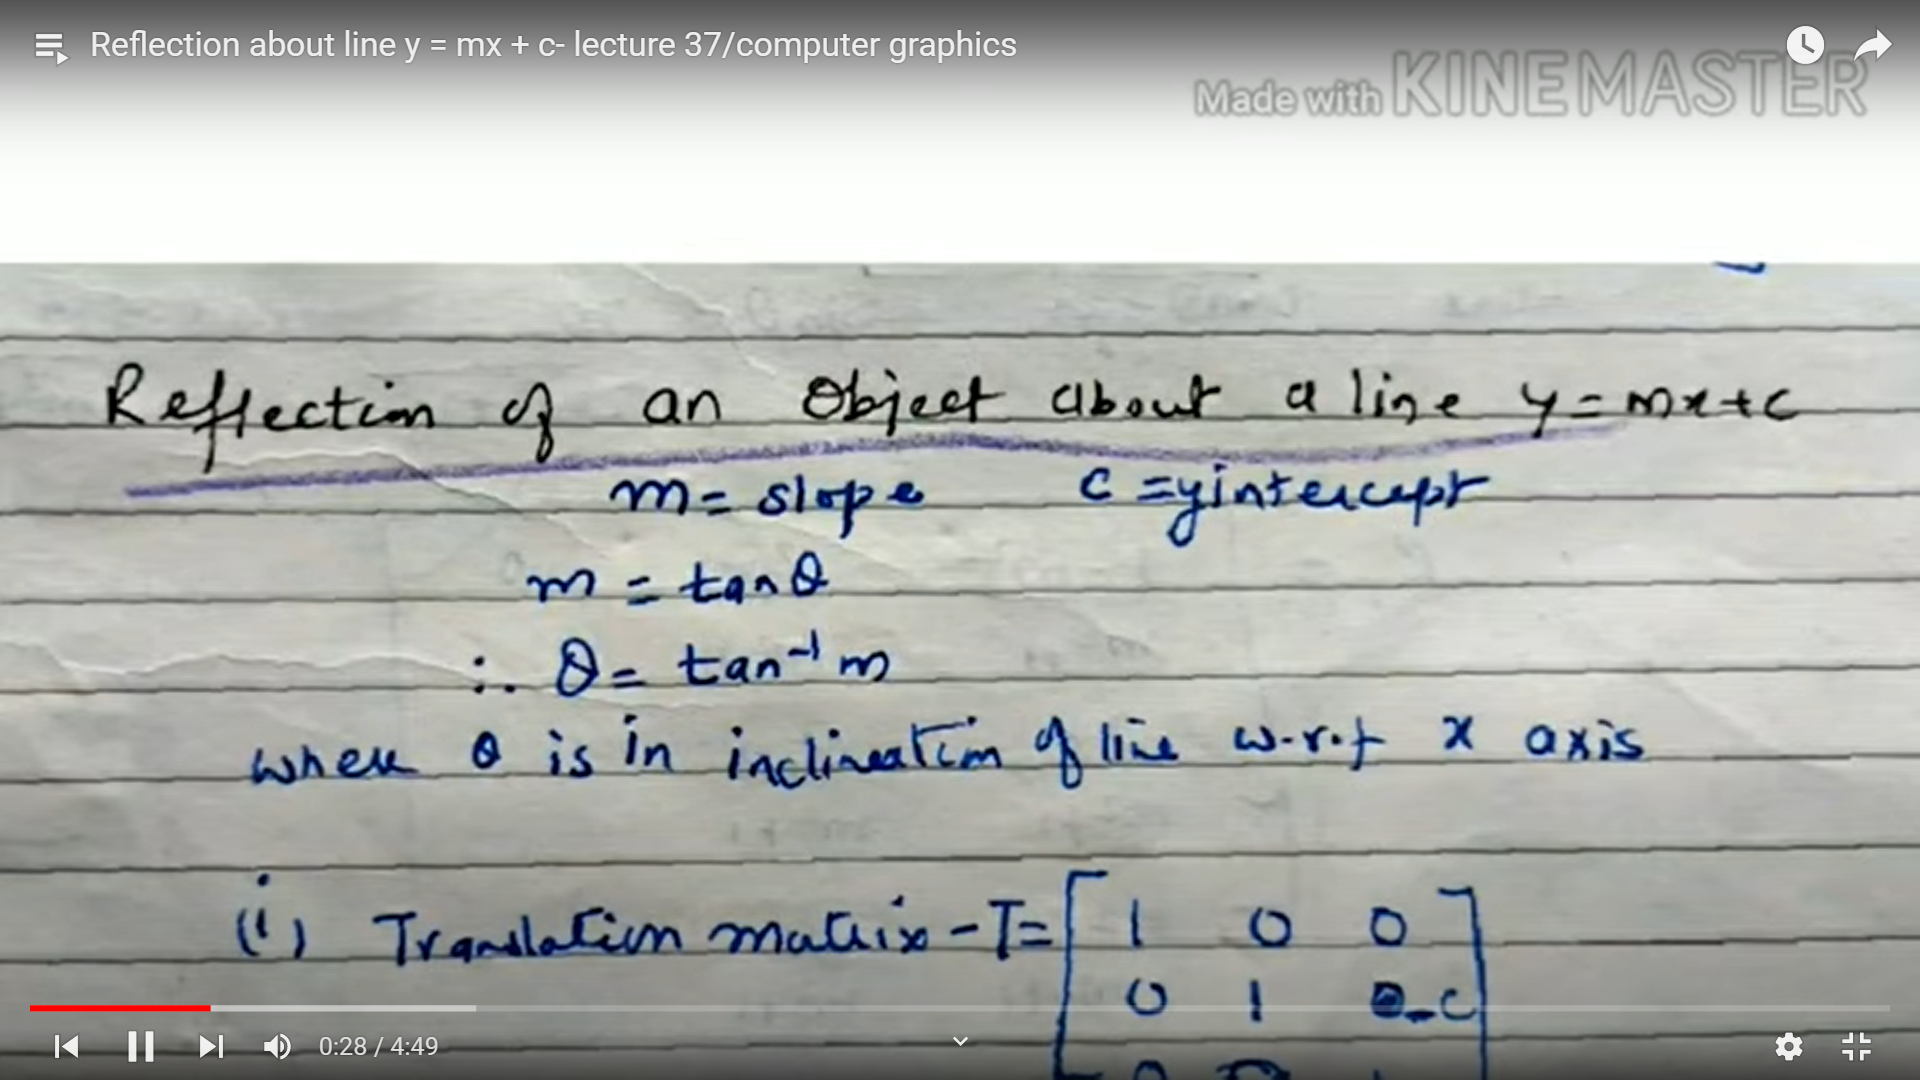 Reflection about line y = mx + c- lecture 37/computer graphics
Made with KINEMASTER
Reflection of an Object about a line y=mx+c
m= slope c =yintercept
m = tanθ
∴ θ= tan⁻¹ m
where θ is in inclination of line w.r.t x axis
(i) Translation matrix - T= [ 1 0 0 ]
0 1 -c
0:28 / 4:49